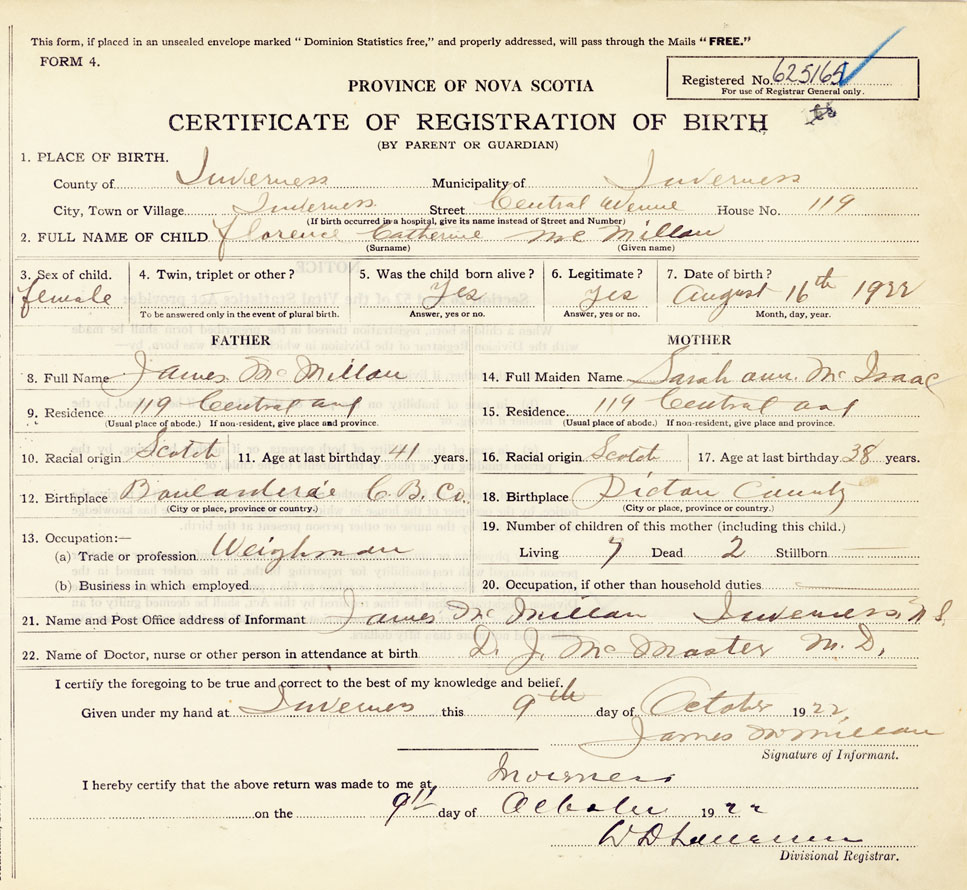 This form, if placed in an unsealed envelope marked "Dominion Statistics free," and properly addressed, will pass through the Mails "FREE."
FORM 4.
Registered No. 625165
For use of Registrar General only.
PROVINCE OF NOVA SCOTIA
CERTIFICATE OF REGISTRATION OF BIRTH
(BY PARENT OR GUARDIAN)
1. PLACE OF BIRTH.
County of Inverness Municipality of Inverness
City, Town or Village Inverness Street Central Avenue House No. 119
(If birth occurred in a hospital, give its name instead of Street and Number)
2. FULL NAME OF CHILD Florence Catherine Mc Millan
(Surname) (Given name)
3. Sex of child. 4. Twin, triplet or other? 5. Was the child born alive? 6. Legitimate? 7. Date of birth?
female Yes Yes August 16th 1922
To be answered only in the event of plural birth. Answer, yes or no. Answer, yes or no. Month, day, year.
FATHER MOTHER
8. Full Name James McMillan 14. Full Maiden Name Sarah ann. Mc Isaac
9. Residence 119 Central ave 15. Residence. 119 Central ave
(Usual place of abode.) If non-resident, give place and province. (Usual place of abode.) If non-resident, give place and province.
10. Racial origin Scotch 11. Age at last birthday 41 years. 16. Racial origin Scotch 17. Age at last birthday 38 years.
12. Birthplace C. B. Co. 18. Birthplace Pictou County
(City or place, province or country.) (City or place, province or country.)
19. Number of children of this mother (including this child.)
13. Occupation:—
(a) Trade or profession Weighman Living 7 Dead 2 Stillborn
(b) Business in which employed 20. Occupation, if other than household duties
21. Name and Post Office address of Informant James Mc Millan Inverness N S.
22. Name of Doctor, nurse or other person in attendance at birth D. J. Mc Master M. D.
I certify the foregoing to be true and correct to the best of my knowledge and belief.
Given under my hand at Inverness this 9th day of October 1922
James McMillan
Signature of Informant.
I hereby certify that the above return was made to me at Inverness
on the 9th day of October 1922
Divisional Registrar.